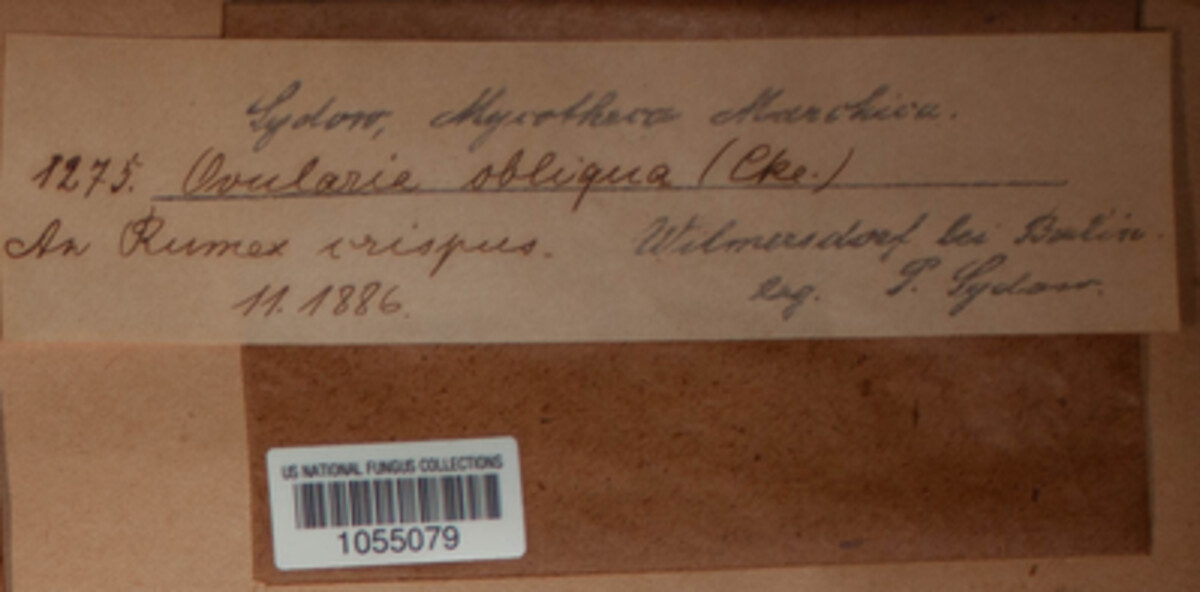 Sydow, Mycotheca Marchica.
1275. Ovularia obliqua (Cke.)
An Rumex crispus. Wilmersdorf bei Berlin.
11. 1886. leg. P. Sydow.
US NATIONAL FUNGUS COLLECTIONS
1055079